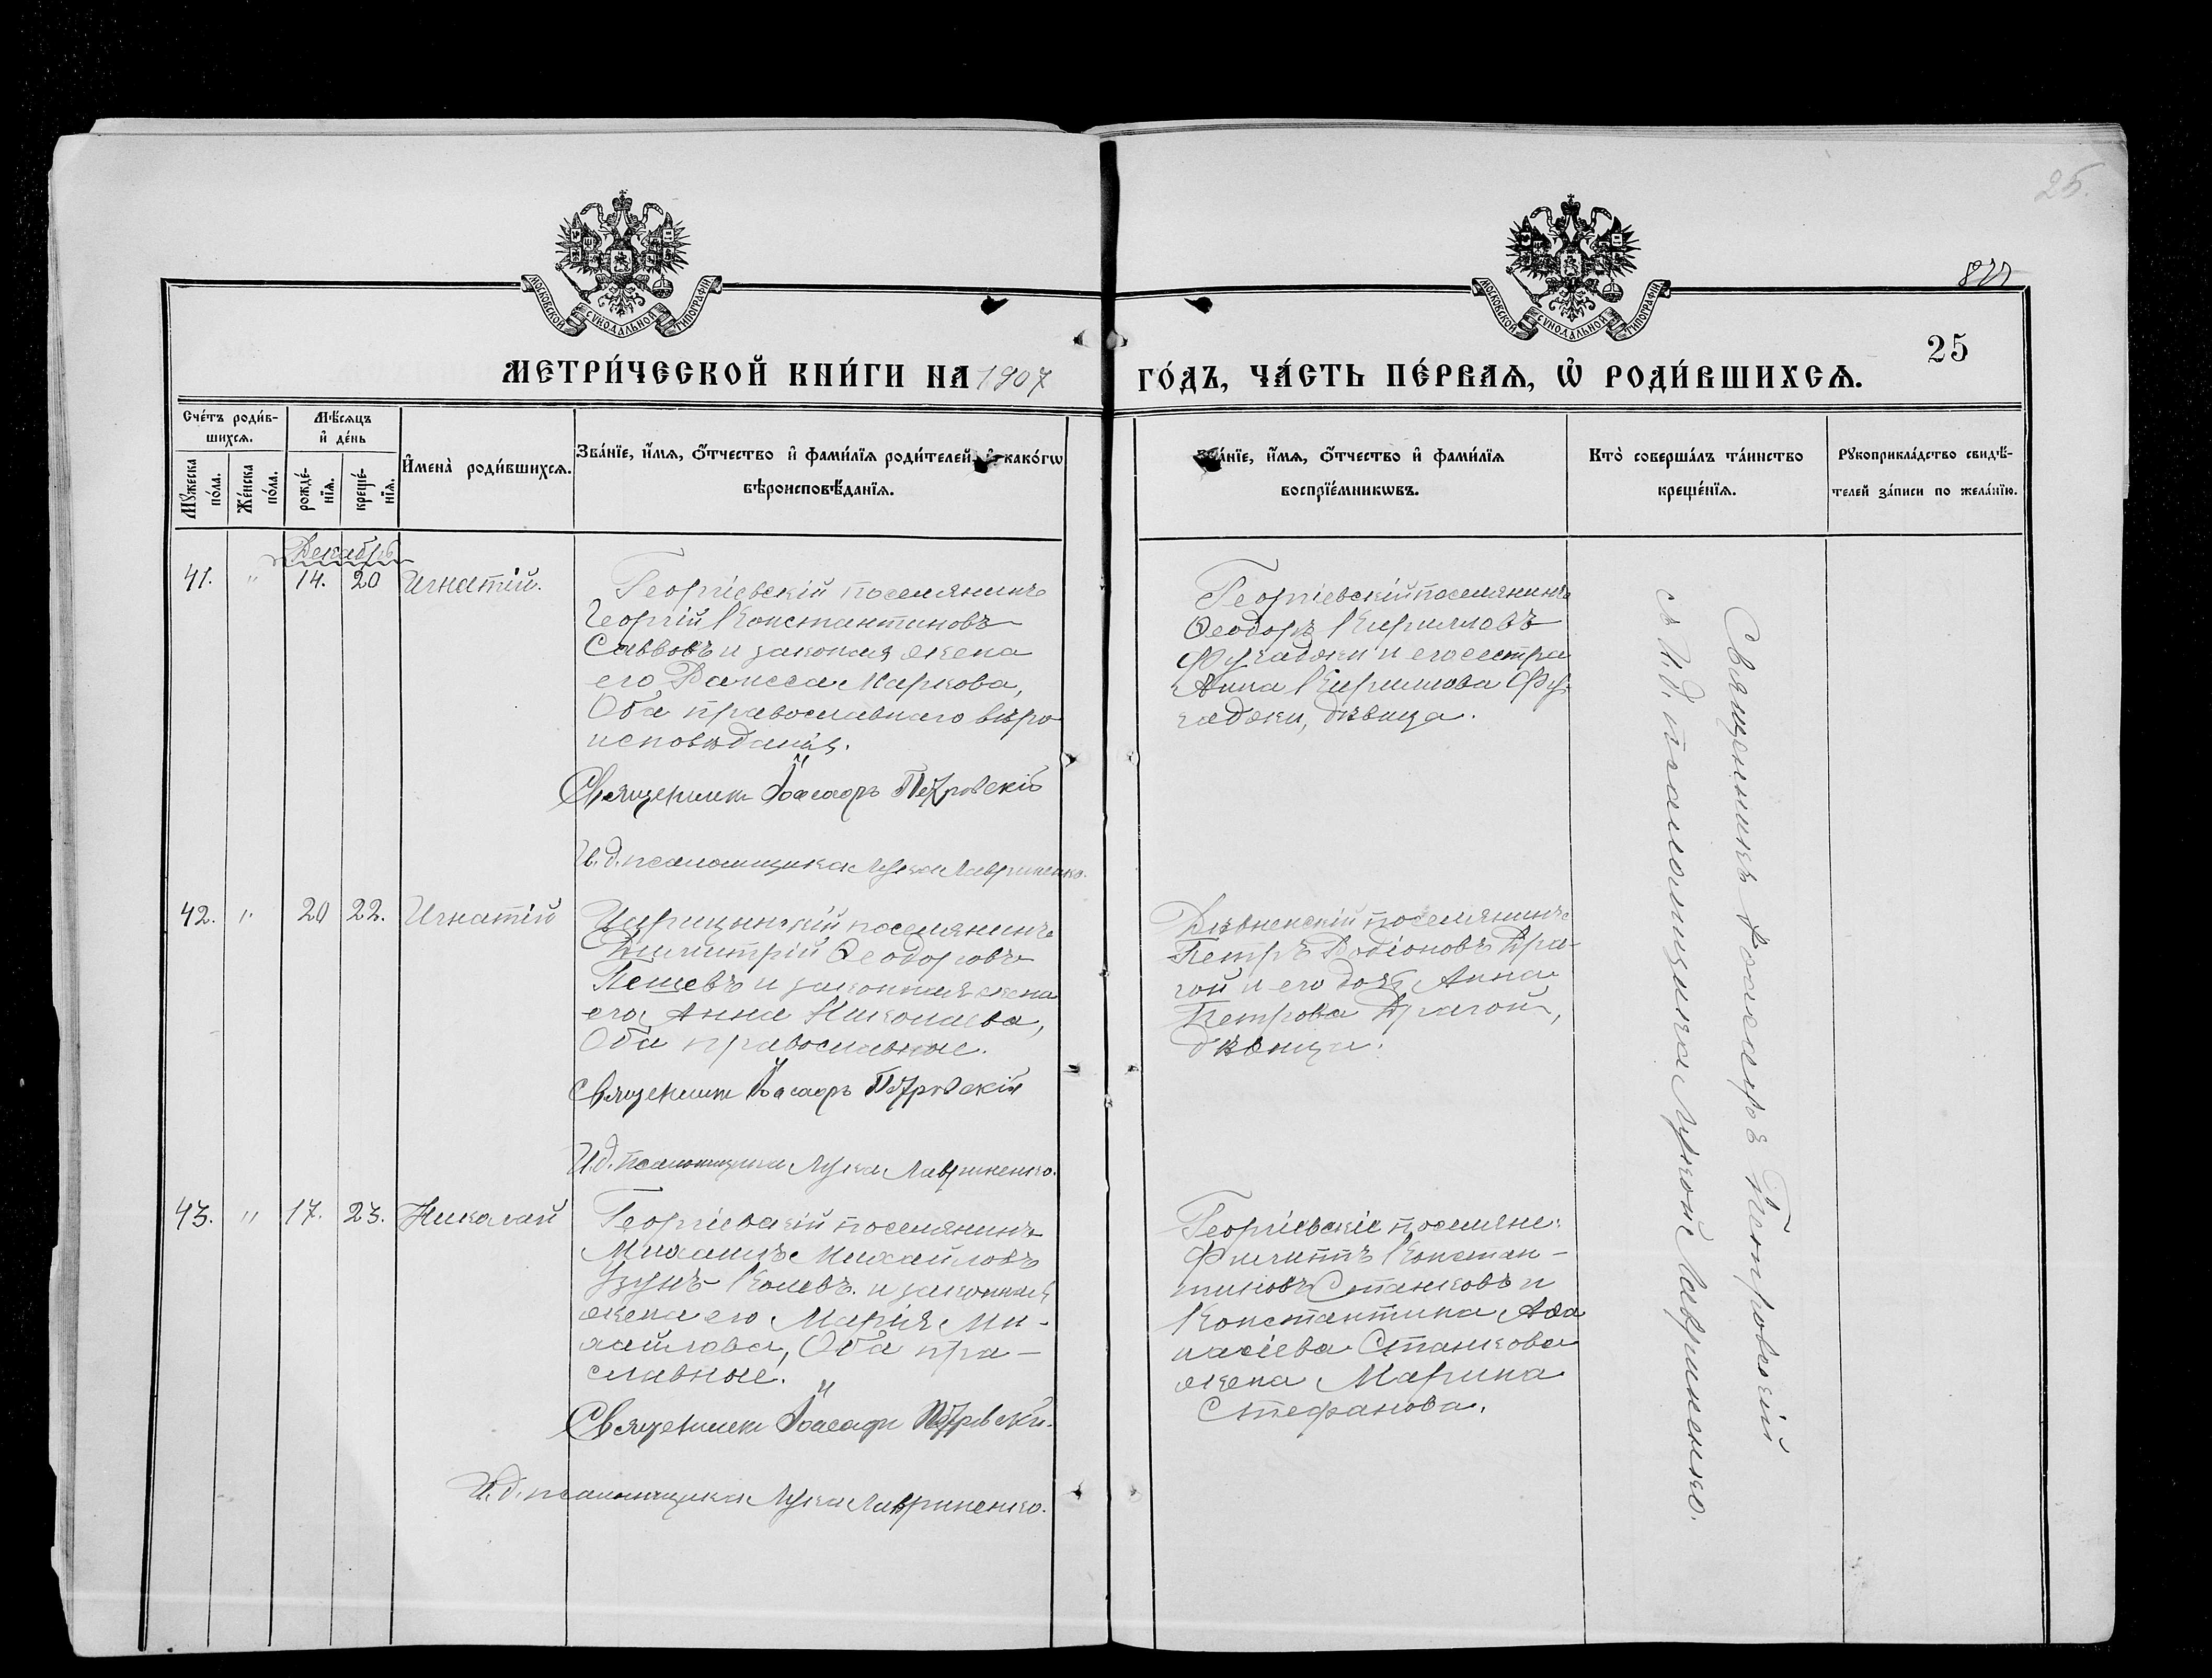 25.
МОСКОВСКОЙ СѴНОДАЛЬНОЙ ТИПОГРАФІИ
МОСКОВСКОЙ СѴНОДАЛЬНОЙ ТИПОГРАФІИ
25
МЕТРИ́ЧЕСКОЙ КНИ́ГИ НА 1907
ГО́ДЪ, ЧА́СТЬ ПЕ́РВАѦ, Ѡ҆ РОДИ́ВШИХСѦ.
Сче́тъ роди́в-
шихсѧ.
Мꙋ́жеска по́ла.
Же́нска по́ла.
Мѣ́сѧцъ
и҆ де́нь
рожде́-
нїѧ.
креще́-
нїѧ.
И҆мена̀ роди́вшихсѧ.
Зва́нїе, и҆́мѧ, ѻ҆́тчество и҆ фами́лїѧ роди́телей, и҆ како́гѡ
вѣроисповѣ́данїѧ.
Зва́нїе, и҆́мѧ, ѻ҆́тчество и҆ фами́лїѧ
воспрїе́мникѡвъ.
Кто̀ соверша́лъ та́инство
креще́нїѧ.
Рꙋкоприкла́дство свидѣ́-
телей за́писи по жела́нїю.
Декабрь
41. " 14. 20 Игнатій.
Георгіевскій поселянинъ
Георгій Константиновъ
Саввовъ и законная жена
его Раисса Маркова,
Оба православнаго вѣро
исповѣданія.
Священник Іоасафъ Петровскій
И. д. псаломщика Лука Лавриненко.
Георгіевскій поселянинъ
Ѳеодоръ Кирилловъ
Фучаджи и его сестра
Анна Кириллова Фу-
чаджи, дѣвица.
42. " 20 22. Игнатій
Царицынскій поселянинъ
Димитрій Ѳеодоровъ
Пешевъ и законная жена
его Анна Николаева,
Оба православные.
Священник Іоасафъ Петровскій
И. д. псаломщика Лука Лавриненко.
Дивненскій поселянинъ
Петръ Родіоновъ Дра-
гой и его дочь Анна
Петрова Драгой,
дѣвица.
43. " 17. 23. Николай
Георгіевскій поселянинъ
Михаилъ Михайловъ
Узунъ Колевъ и законная
жена его Марія Ми-
хайлова, Оба пра-
славные.
Священник Іоасафъ Петровскій.
И. д. псаломщика Лука Лавриненко.
Георгіевскіе поселяне:
Филиппъ Констан-
тиновъ Станковъ и
Константина Аѳа
насіева Станкова
жена Марина
Стефанова.
Священникъ Іоасафъ Петровскій
съ И. д. псаломщика Лукой Лавриненко.